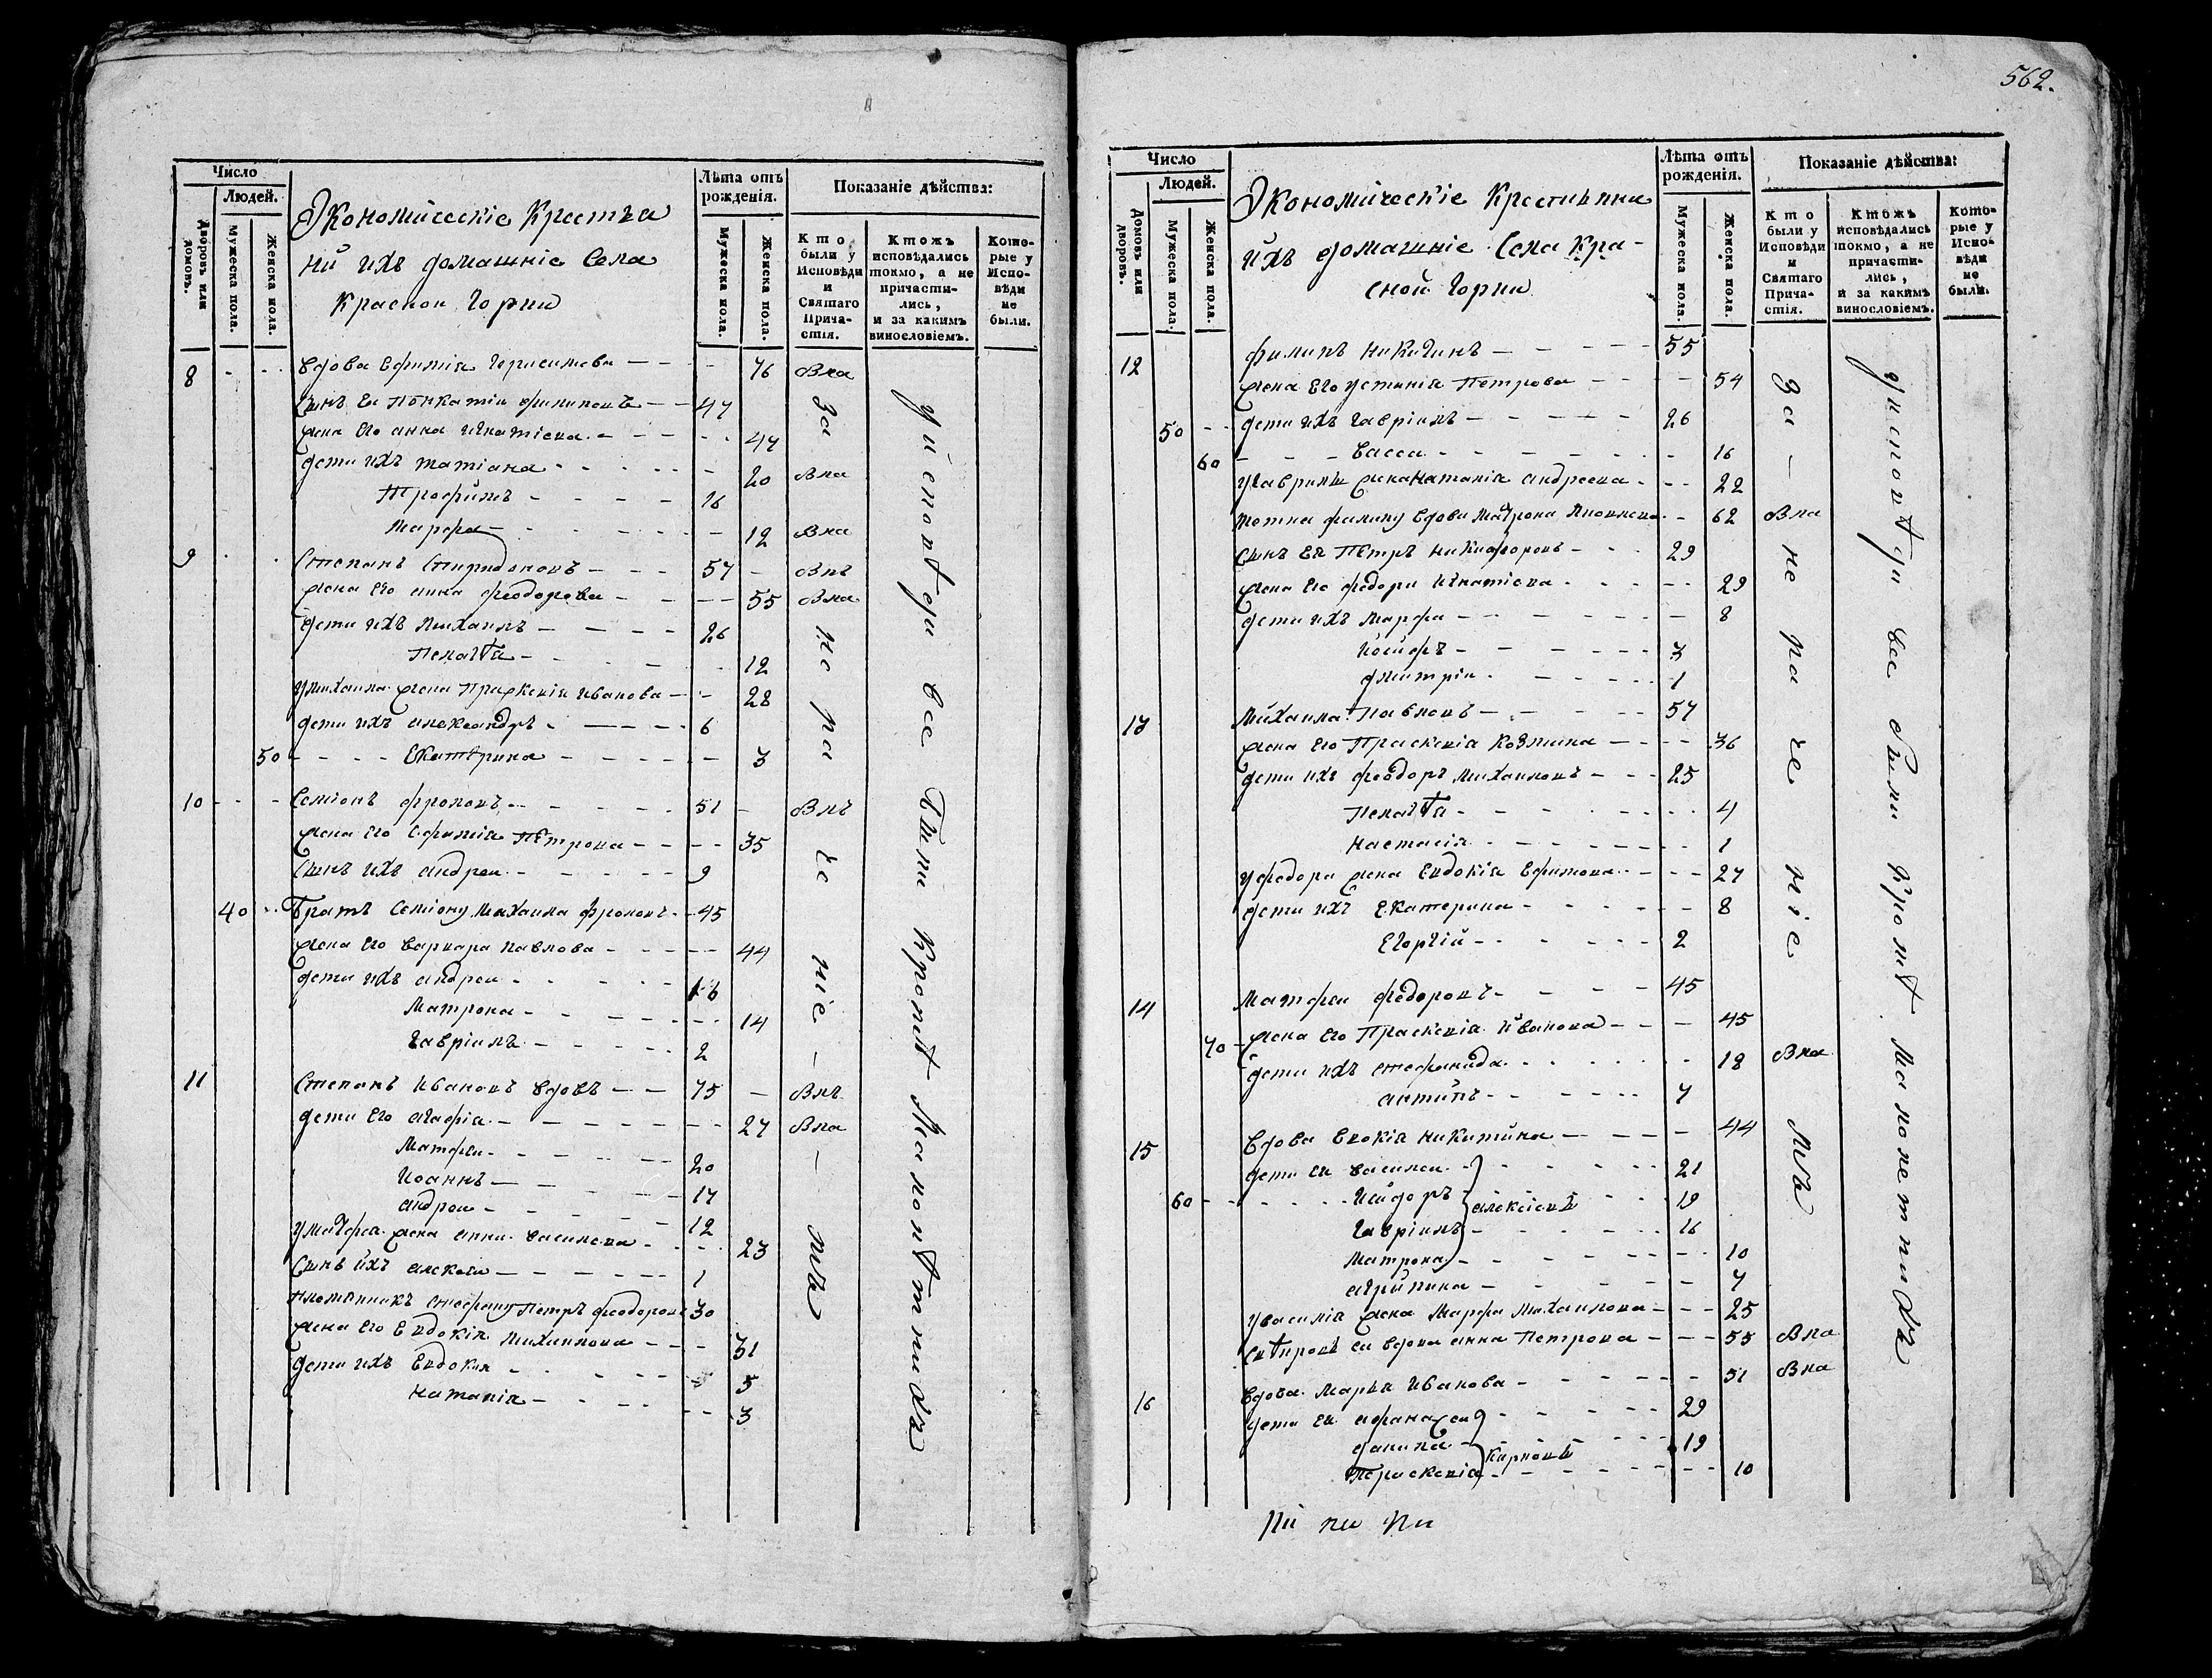 562.
Число
Людей.
Дворовъ или домовъ.
Мужеска пола.
Женска пола.
Экономическіе Крестья
ни ихъ домашніе Села
Краснои Горки
Лѣта отъ рожденія.
Мужеска пола.
Женска пола.
Показаніе дѣйства:
Кто были у Исповѣди и Святаго Прича-стія.
Ктожъ исповѣдались токмо, а не причасти-лись, и за какимъ винословіемъ.
Кото-рые у Испо-вѣди не были.
8 Вдова Ефимія Герасимова 76 Вла
Сынъ Ея Филиповъ 47
жена Его анна Игнатіева 47
дети ихъ татіана 20 Вла
Трофимъ 16
Марфа 12 Вла
9 Степанъ Спиридоновъ 57 Влъ
жена Его анна феодорова 55 Вла
дети ихъ Михаилъ 26
Пелагѣа 12
у Михаила жена Праскевія Иванова 28
дети ихъ александръ 6
50 Екатерина 3
10 Семіонъ фроловъ 51 Влъ
жена Его Ефимія Петрова 35
Сынъ ихъ андреи 9
40 братъ Семіону Михаила фроловъ 45
жена Его варвара павлова 44
дети ихъ андреи 16
Матрона 14
Гавріилъ 2
11 Степанъ Ивановъ вдовъ 75 Влъ
дети Его агафіа 27 Вла
Матфеи 20
Иоаннъ 17
андреи 12
у матфеа жена анна васильева 23
Сынъ ихъ алексеи 1
племянникъ стефану Петръ феодоровъ 30
жена Его Евдокія Михаилова 31
дети ихъ Евдокия 5
Наталія 3
за не ра че ніе мъ
у исповѣди все были кромѣ Малолѣтнихъ
Число
Людей.
Домовъ или дворовъ.
Мужеска пола.
Женска пола.
Экономическіе Крестьяни
ихъ домашніе Села Кра-
сной Горки
Лѣта отъ рожденія.
Мужеска пола.
Женска пола.
Показаніе дѣйства:
Кто были у Исповѣди и Святаго Прича-стія.
Ктожъ исповѣдались токмо, а не причасти-лись, и за какимъ винословіемъ.
Кото-рые у Испо-вѣди не были.
12 филипъ Никитинъ 55
жена Его устинія Петрова 54
50 дети ихъ гавріилъ 26
60 васса 16
у гаврила жена Наталія андреева 22
филипу вдова Матрона 62 Вла
Сынъ Ея Петръ Никифоровъ 29
жена Его федора Игнатіева 29
дети ихъ Марфа 8
Иосифъ 3
дмитріи 1
13 Михаила Павловъ 57
жена Его Праскевіа Козмина 36
дети ихъ феодоръ Михаиловъ 25
Пелагѣа 4
Настасіа 1
у федора жена Евдокіа Ефимова 27
дети ихъ Екатерина 8
Егоргій 2
14 Матфеи федоровъ 45
70 жена Его Праскевіа Иванова 45
дети ихъ стефанида 18 Вла
антипъ 7
15 Вдова Евокіа Никитина 44
дети Ея василеи 21
60 Исидоръ алексіевы 19
Гавріилъ 16
Матрона 10
агрипина 7
у василіа жена Марфа Михаилова 25
свѣкровь Ея вдова анна Петрова 55 Вла
16 Вдова Марья Иванова 51 Вла
дети Ея афанасеи 29
данила Карповы 19
Праскевіа 10
за не ра че ніе мъ
у исповѣди все были кромѣ Малолетнихъ